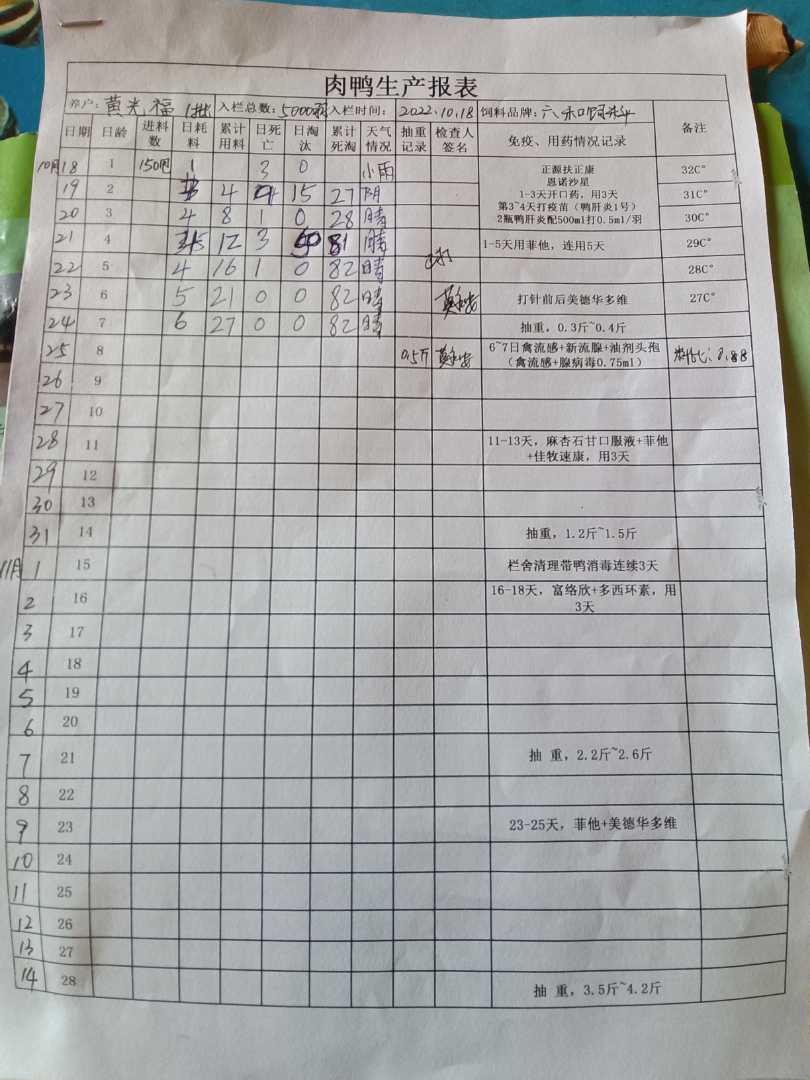 肉鸭生产报表
养户: 黄光福 1批 入栏总数: 5000羽 入栏时间: 2022.10.18 饲料品牌: 六和饲料 备注
日期 日龄 进料数 日耗料 累计用料 日死亡 日淘汰 累计死淘 天气情况 抽重记录 检查人签名 免疫、用药情况记录
10月18 1 150包 1 3 0 小雨 正源扶正康 32C°
恩诺沙星
19 2 3 4 15 27 阴 1-3天开口药,用3天 31C°
第3~4天打疫苗(鸭肝炎1号)
20 3 4 8 1 0 28 晴 2瓶鸭肝炎配500ml打0.5ml/羽 30C°
21 4 12 3 50 81 晴 1-5天用菲他,连用5天 29C°
22 5 4 16 1 0 82 晴 28C°
23 6 5 21 0 0 82 晴 打针前后美德华多维 27C°
24 7 6 27 0 0 82 晴 抽重, 0.3斤~0.4斤
25 8 0.5斤 6~7日禽流感+新流腺+油剂头孢
(禽流感+腺病毒0.75ml)
26 9
27 10
28 11 11-13天,麻杏石甘口服液+菲他
+佳牧速康,用3天
29 12
30 13
31 14 抽重, 1.2斤~1.5斤
11月 1 15 栏舍清理带鸭消毒连续3天
2 16 16-18天,富络欣+多西环素,用
3天
3 17
4 18
5 19
6 20
7 21 抽 重, 2.2斤~2.6斤
8 22
9 23 23-25天,菲他+美德华多维
10 24
11 25
12 26
13 27
14 28 抽 重, 3.5斤~4.2斤